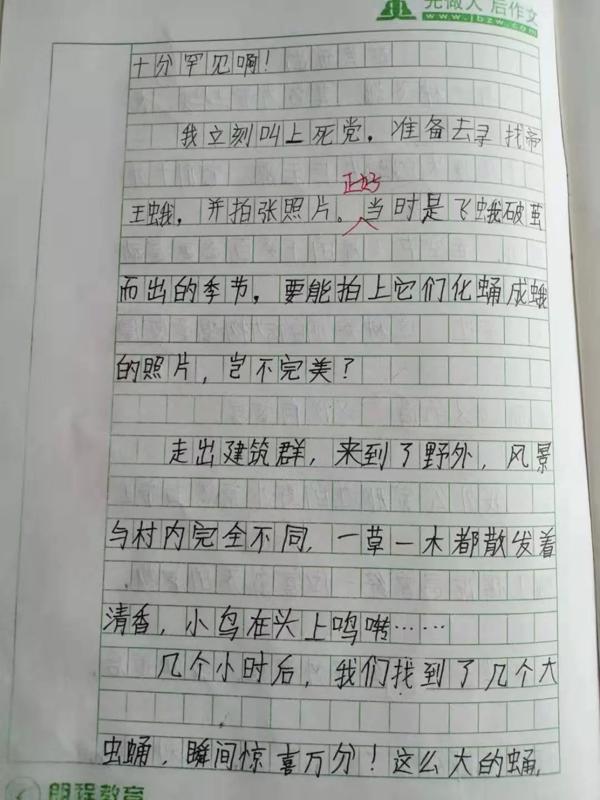 先做人 后作文
www.jbzw.com
十分罕见啊！
我立刻叫上死党，准备去寻找帝
正好
王蛾，并拍张照片。当时是飞蛾破茧
而出的季节，要能拍上它们化蛹成蛾
的照片，岂不完美？
走出建筑群，来到了野外，风景
与村内完全不同，一草一木都散发着
清香，小鸟在头上鸣啭……
几个小时后，我们找到了几个大
虫蛹，瞬间惊喜万分！这么大的蛹，
朗程教育